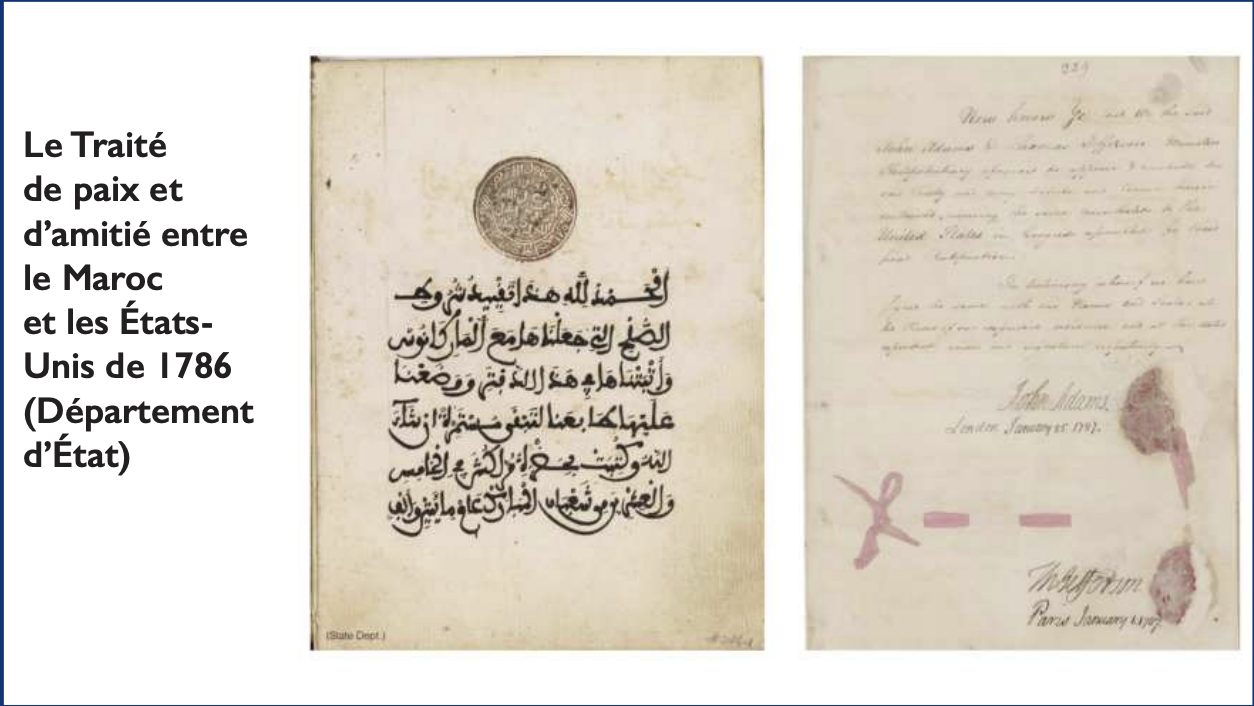 Le Traité
de paix et
d'amitié entre
le Maroc
et les États-
Unis de 1786
(Département
d'État)
الحمد لله هذا تقييد شروط
الصلح التي جعلناها مع الماركانوس
وأثبتناها في هذا الدفتر ووضعنا
عليها طابعنا لتبقى مستمرة إن شاء
الله وكتبت بحضرة مراكش في الخامس
والعشرين من شعبان المبارك عام مائتين وألف
(State Dept.)
Now know Ye that We the said
John Adams & Thomas Jefferson Ministers
Plenipotentiary aforesaid do approve & conclude the
said Treaty and every Article and Clause therein
contained, reserving the same nevertheless to the
United States in Congress assembled for their
final Ratification.
In testimony whereof we have
signed the same with our Names and Seals, at
the places of our respective residence and at the dates
expressed under our signatures respectively.
John Adams.
London January 25. 1787.
Th Jefferson
Paris January 1. 1787.